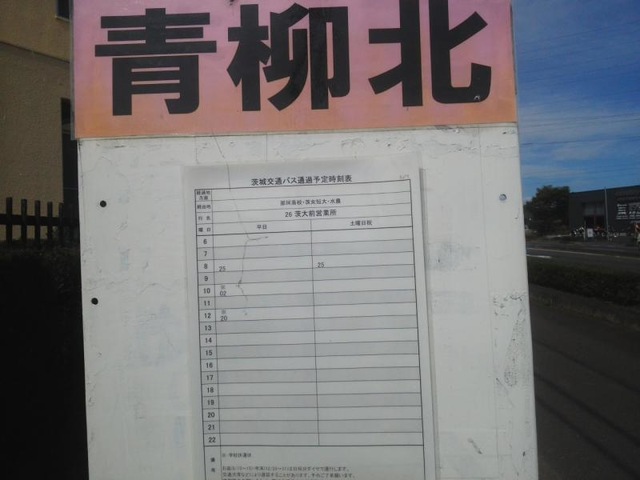 青柳北
茨城交通バス通過予定時刻表
那珂高校・茨女短大・水農
行先 26 茨大前営業所
曜日 平日 土曜日祝
6
7
8 25 25
9
10 ※ 02
11
12 ※ 20
13
14
15
16
17
18
19
20
21
22